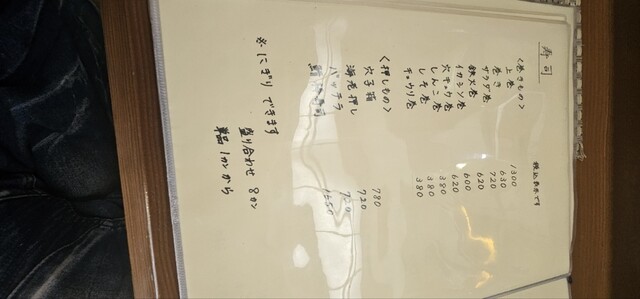 寿司
税込表示です
〈巻きもの〉
上巻 1300
巻き 630
サラダ巻 720
鉄火巻 620
イカシソ巻 600
穴キュウ巻 620
しんこ巻 380
しそ巻 380
キュウリ巻 380
〈押しもの〉
穴子箱 780
海老押し 920
バッテラ
※にぎりできます
盛り合わせ 8カン
単品 1カンから